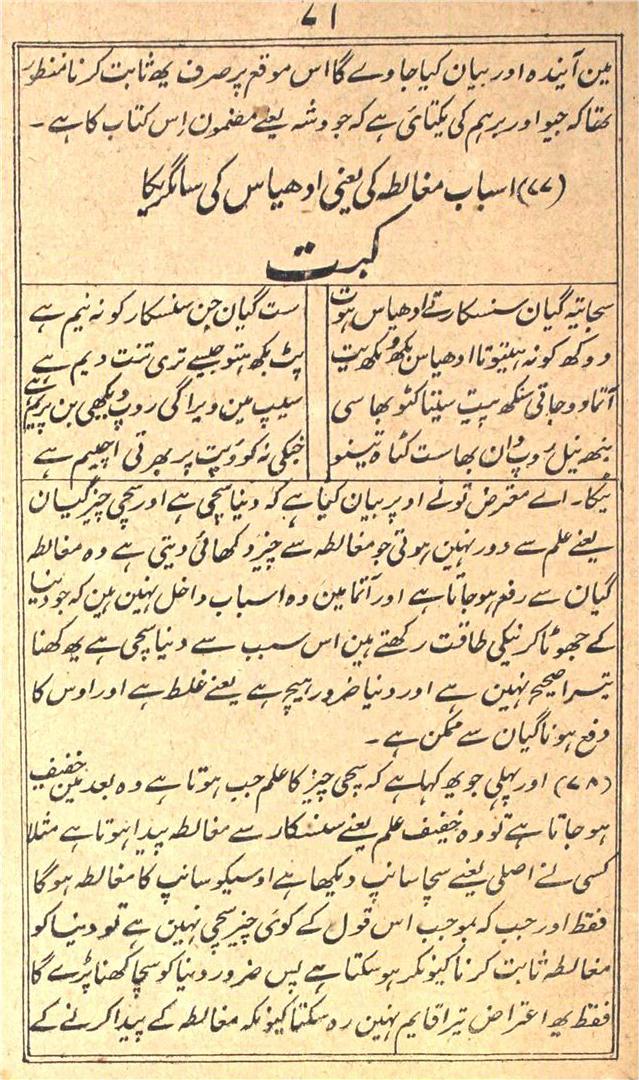 ۷۱
مین آیندہ اور بیان کیا جاوے گا اس موقع پر صرف یھ ثابت کرنا منظور
تھا کہ جیو اور برہم کی یکتائی ہے کہ جو وشہ یعنے مضمون اِس کتاب کا ہے ۔
(۷۷) اسباب مغالطہ کی یعنی ادھیاس کی سامگریکا
کبت
سجاتیہ گیان سنسکار تے ادھیاس ہوت
ست گیان جن سنسکار کو نہ نیم ہے
دوکھ کو نہ ہیتوتا ادھیاس
پٹ بکھ ہتو جیسے تری تنت ویم ہے
آتما دوجاتی سنکھ پیت سیتا کٹو بھاسی
سیپ مین ویراگی روپ دیکھی بن پریم ہے
نبھ نیل روپوان بھاست کٹاہ تینو
جنکی نہ کو ویت پر بھرتی اچیم ہے
ٹیکا ۔ اے معترض تونے اوپر بیان کیا ہے کہ دنیا سچی ہے اور سچی چیز گیان
یعنے علم سے دور نہین ہوتی جو مغالطہ سے چیز دکھائی دیتی ہے وہ مغالطہ
گیان سے رفع ہو جاتا ہے اور آتما مین وہ اسباب داخل نہین ہین کہ جو دنیا
کے جھوٹا کرنیکی طاقت رکھتے ہین اس سبب سے دنیا سچی ہے یھ کھنا
تیرا صحیح نہین ہے اور دنیا ضرور ہیچ ہے یعنے غلط ہے اور اوس کا
دفع ہونا گیان سے ممکن ہے ۔
(۷۸) اور پہلی جو یھ کہا ہے کہ سچی چیز کا علم جب ہوتا ہے وہ بعد مین خفیف
ہو جاتا ہے تو وہ خفیف علم یعنے سنسکار سے مغالطہ پیدا ہوتا ہے مثلاً
کسی نے اصلی یعنے سچا سانپ دیکھا ہے اوسیکو سانپ کا مغالطہ ہوگا
فقط اور جب کہ بموجب اس قول کے کوئی چیز سچی نہین ہے تو دنیا کو
مغالطہ ثابت کرنا کیونکر ہو سکتا ہے پس ضرور دنیا کو سچا کھنا پڑے گا
فقط یھ اعتراض تیرا قایم نہین رہ سکتا کیونکہ مغالطہ کے پیدا کرنے کے